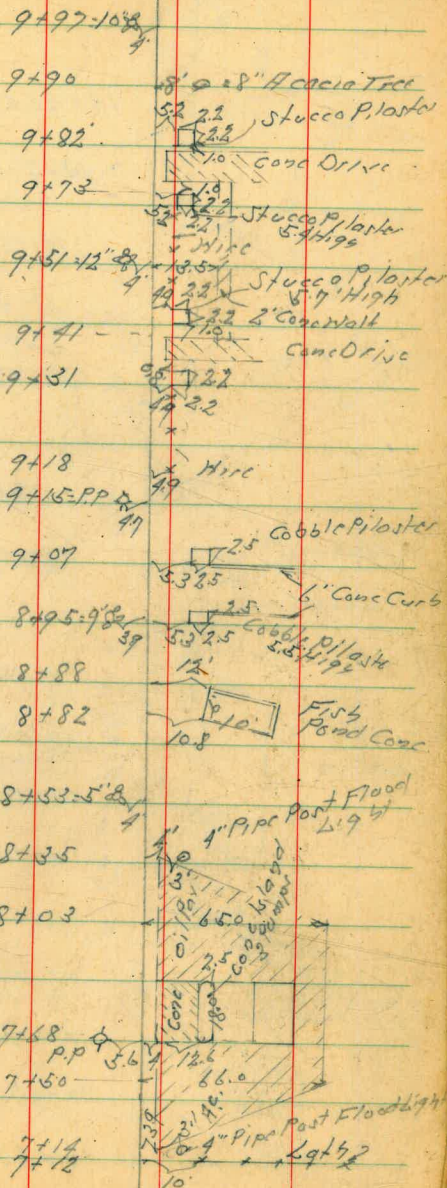 9+97-10"
4'
9+90 8' 8" Acacia Tree
5.2 2.2 Stucco Pilaster
9+82 2.2
1.0 Conc Drive
9+73 1.0
5.2 2.2 2.2 Stucco Pilaster
5.4 High
Wire
9+51-12" 13.5
4' Stucco Pilaster
4.9 2.2 5.7' High
2.2 2' Conc Wall
9+41 1.0
Conc Drive
9+31 0.8 2.2
4.9 2.2
9+18 Wire
4.9
9+15-P.P
4.7
Cobble Pilaster
9+07 2.5
5.3 2.5 6" Conc Curb
8+95-9" 2.5
3.9 5.3 2.5 Cobble Pilaste
5.5 High
8+88 12'
8+82 10' Fish
Pond Conc
10.8
8+53-5"
4'
4" Pipe Post Flood
Light
8+35 4'
3'
8+03 65.0
Oil Conc Island
Pumps
2.5
Conc 18.0
7+68
P.P 3.6 4' 12.6
7+50 66.0
A.C.
23.9 3.1
7+14 4" Pipe Post Flood Light
7+12
10'